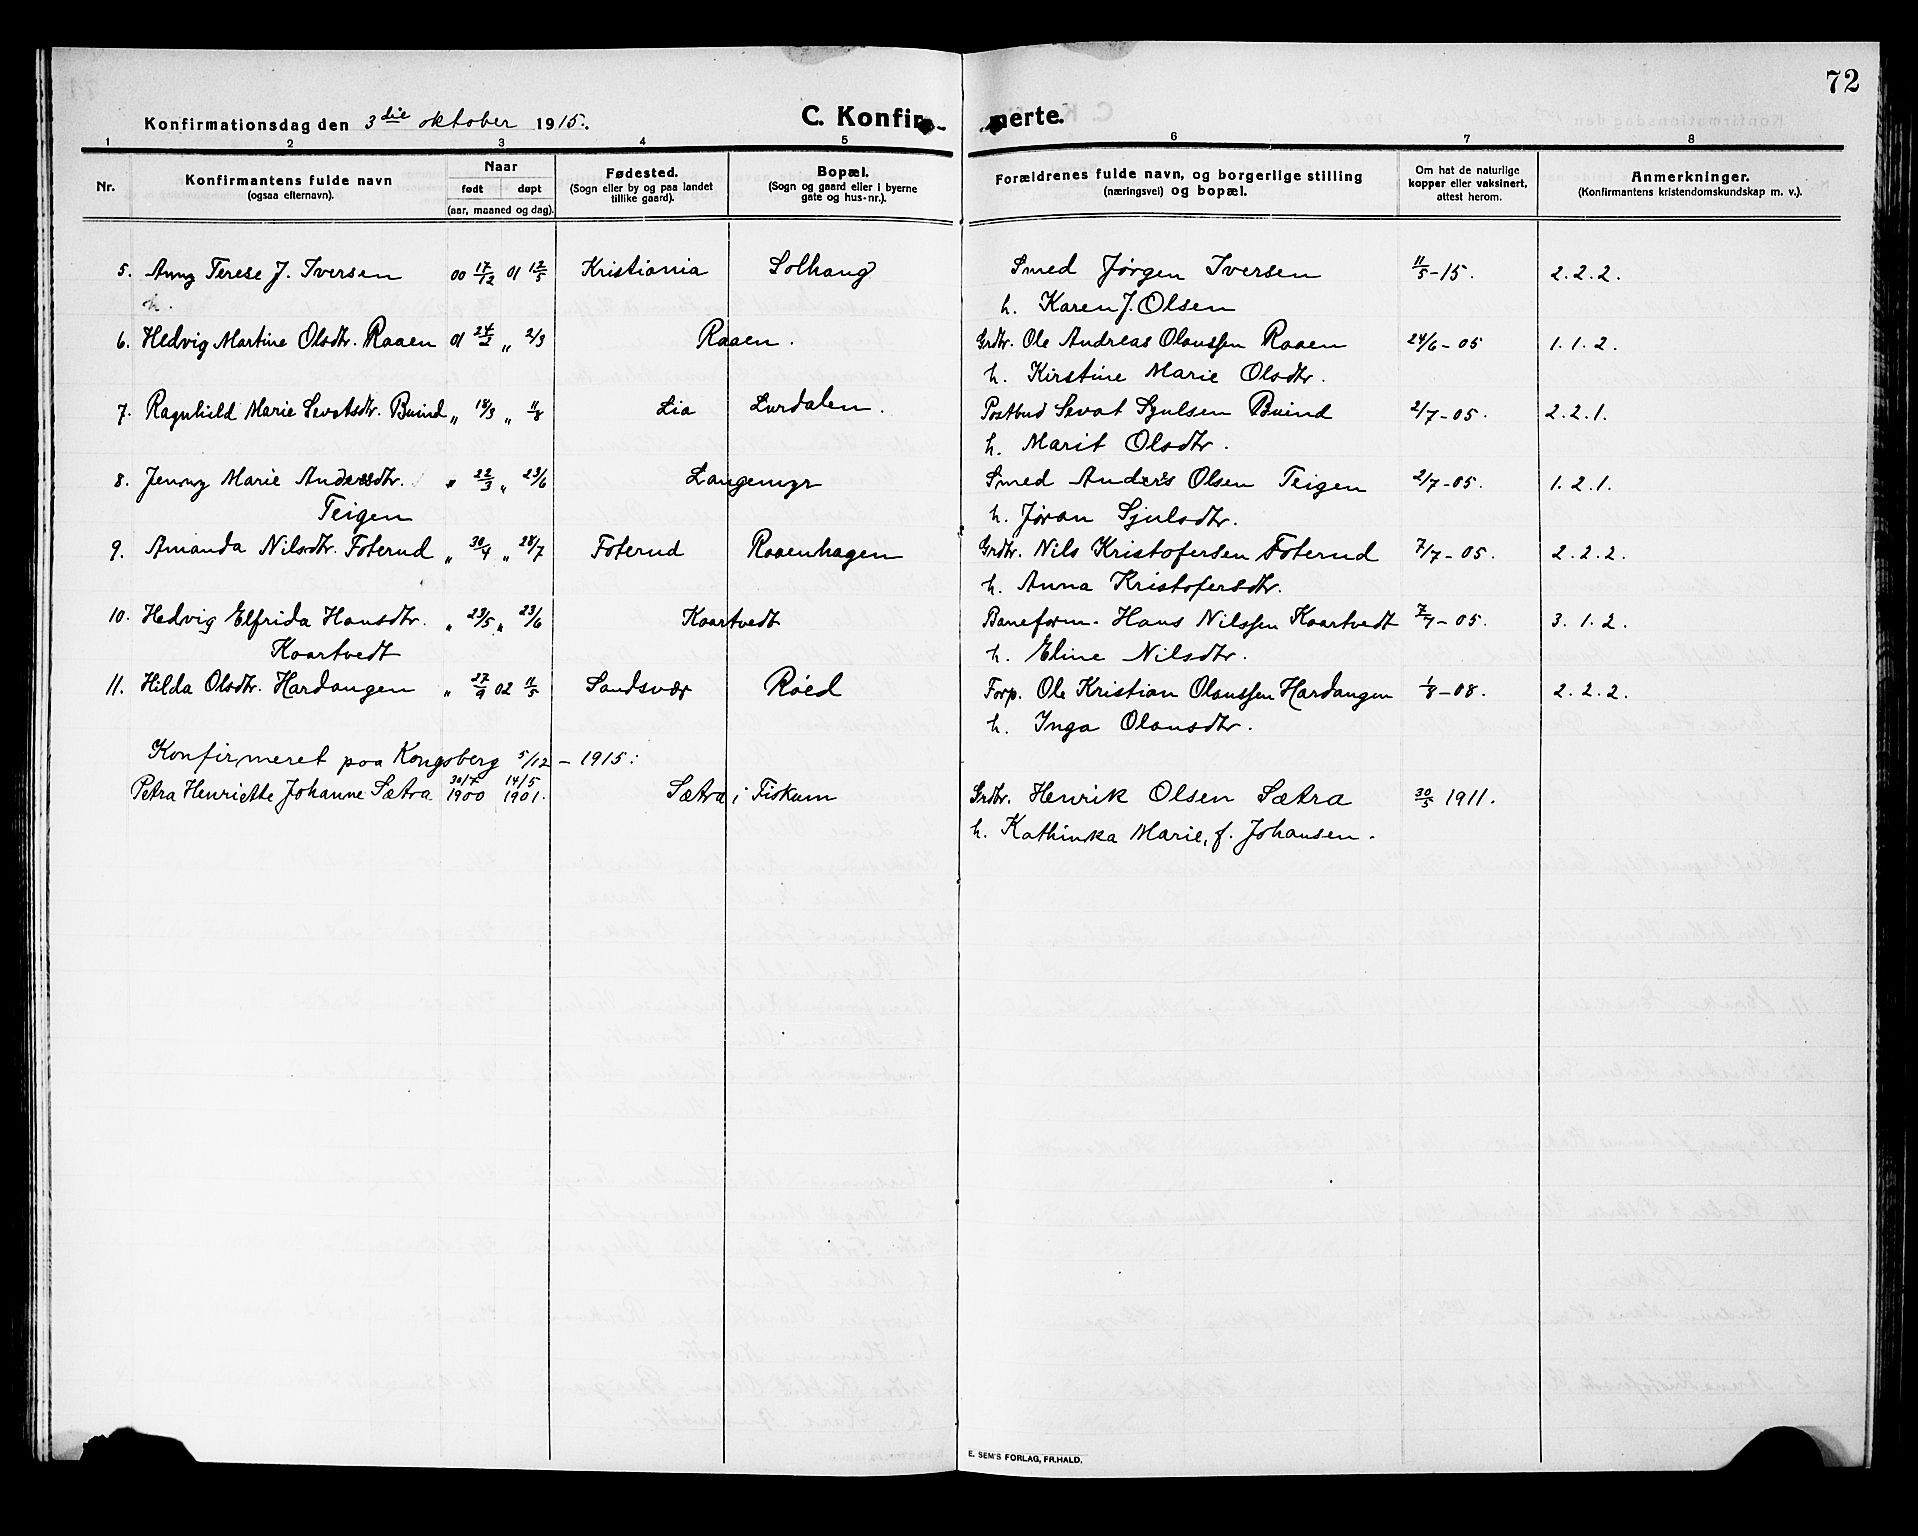 72
Konfirmationsdag den 3die oktober 1915. C. Konfir- merte.
1 2 3 4 5 6 7 8
Nr. Konfirmantens fulde navn (ogsaa efternavn). Naar født døpt (aar, maaned og dag). Fødested. (Sogn eller by og paa landet tillike gaard). Bopæl. (Sogn og gaard eller i byerne gate og hus-nr.). Forældrenes fulde navn, og borgerlige stilling (næringsvei) og bopæl. Om hat de naturlige kopper eller vaksinert, attest herom. Anmerkninger. (Konfirmantens kristendomskundskap m. v.).
5. Anny Terese J. Iversen 00 17/12 01 12/5 Kristiania Solhaug Smed Jørgen Iversen 11/5-15. 2.2.2.
h. h. Karen J. Olsen
6. Hedvig Martine Olsdtr. Raaen 01 24/2 „ 2/3 Raaen. Grdbr. Ole Andreas Olaussen Raaen 24/6-05 1.1.2.
h. Kirstine Marie Olsdtr.
7. Ragnhild Marie Sevatsdtr. Buind „ 18/3 „ 11/8 Lia Lurdalen. Postbud Sevat Sjulsen Buind 2/7-05. 2.2.1.
h. Marit Olsdtr.
8. Jenny Marie Andersdtr. „ 22/3 „ 23/6 Langemyr Smed Anders Olsen Teigen 2/7-05. 1.2.1.
Teigen h. Jøran Sjulsdtr.
9. Amanda Nilsdtr. Foterud „ 30/4 „ 28/7 Foterud Raaenhagen Grdbr. Nils Kristofersen Foterud 7/7-05. 2.2.2.
h. Anna Kristofersdtr.
10. Hedvig Elfrida Hansdtr. „ 23/5 „ 23/6 Kaartvedt Baneform. Hans Nilssen Kaartvedt 7/7-05. 3.1.2.
Kaartvedt h. Eline Nilsdtr.
11. Hilda Olsdtr. Hardangen „ 27/9 02 11/5 Sandsvær Røed Forp. Ole Kristian Olaussen Hardangen 1/8-08. 2.2.2.
h. Inga Olausdtr.
Konfirmeret paa Kongsberg 5/12 - 1915:
Petra Henriette Johanne Sætra 30/7 1900 14/5 1901. Sætra i Fiskum Grdbr. Henrik Olsen Sætra 30/5 1911.
h. Kathinka Marie, f. Johansen.
E. SEM'S FORLAG, FR.HALD.